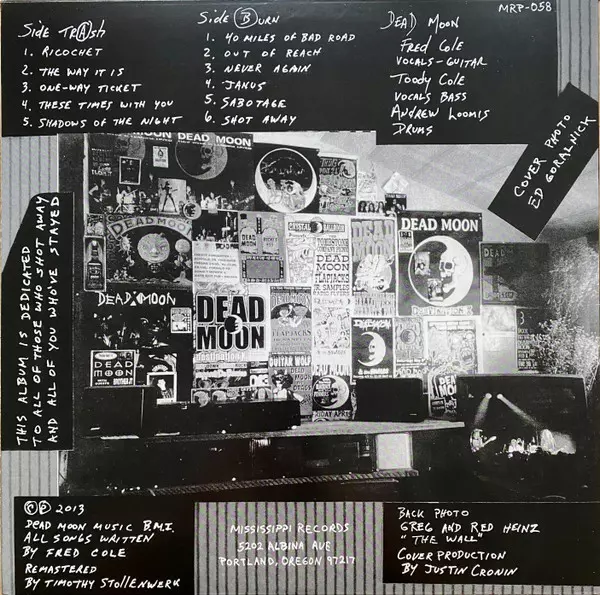 Side TRAsh
1. RICOCHET
2. THE WAY IT IS
3. ONE-WAY TICKET
4. THESE TIMES WITH YOU
5. SHADOWS OF THE NIGHT
Side BURN
1. 40 MILES OF BAD ROAD
2. OUT OF REACH
3. NEVER AGAIN
4. JANUS
5. SABOTAGE
6. SHOT AWAY
DEAD MOON
FRED COLE
VOCALS-GUITAR
TOODY COLE
VOCALS BASS
ANDREW LOOMIS
DRUMS
MRP-058
COVER PHOTO
ED GORALNICK
THIS ALBUM IS DEDICATED
TO ALL OF THOSE WHO SHOT AWAY
AND ALL OF YOU WHO'VE STAYED
MOON DEAD MOON
DEAD MOON
CRYSTAL BALLROOM
DEAD
MOON
FLAPJACKS
JR. SAMPLES
DEAD
MOON
DEAD MOON
DEAD MOON
DEAD
MOON
DEAD
MOON
GUITAR WOLF
© ℗ 2013
DEAD MOON MUSIC B.M.I.
ALL SONGS WRITTEN
BY FRED COLE
REMASTERED
BY TIMOTHY STOLLENWERK
MISSISSIPPI RECORDS
5202 ALBINA AVE
PORTLAND, OREGON 97217
BACK PHOTO
GREG AND RED HEINZ
"THE WALL"
COVER PRODUCTION
BY JUSTIN CRONIN